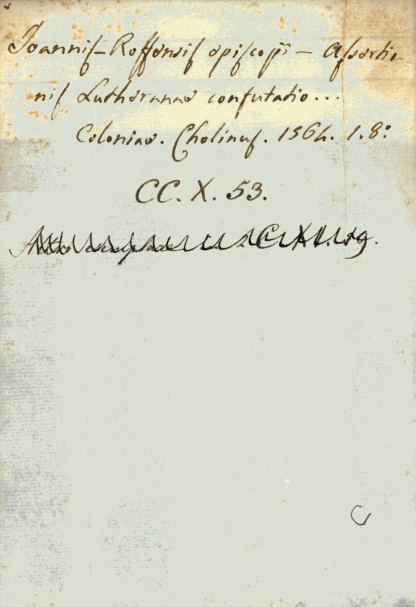 Joannis Roffensis episcopi — Assertio-
nis Lutheranae confutatio...
Coloniae. Cholinus. 1564. 1. 8º
CC. X. 53.